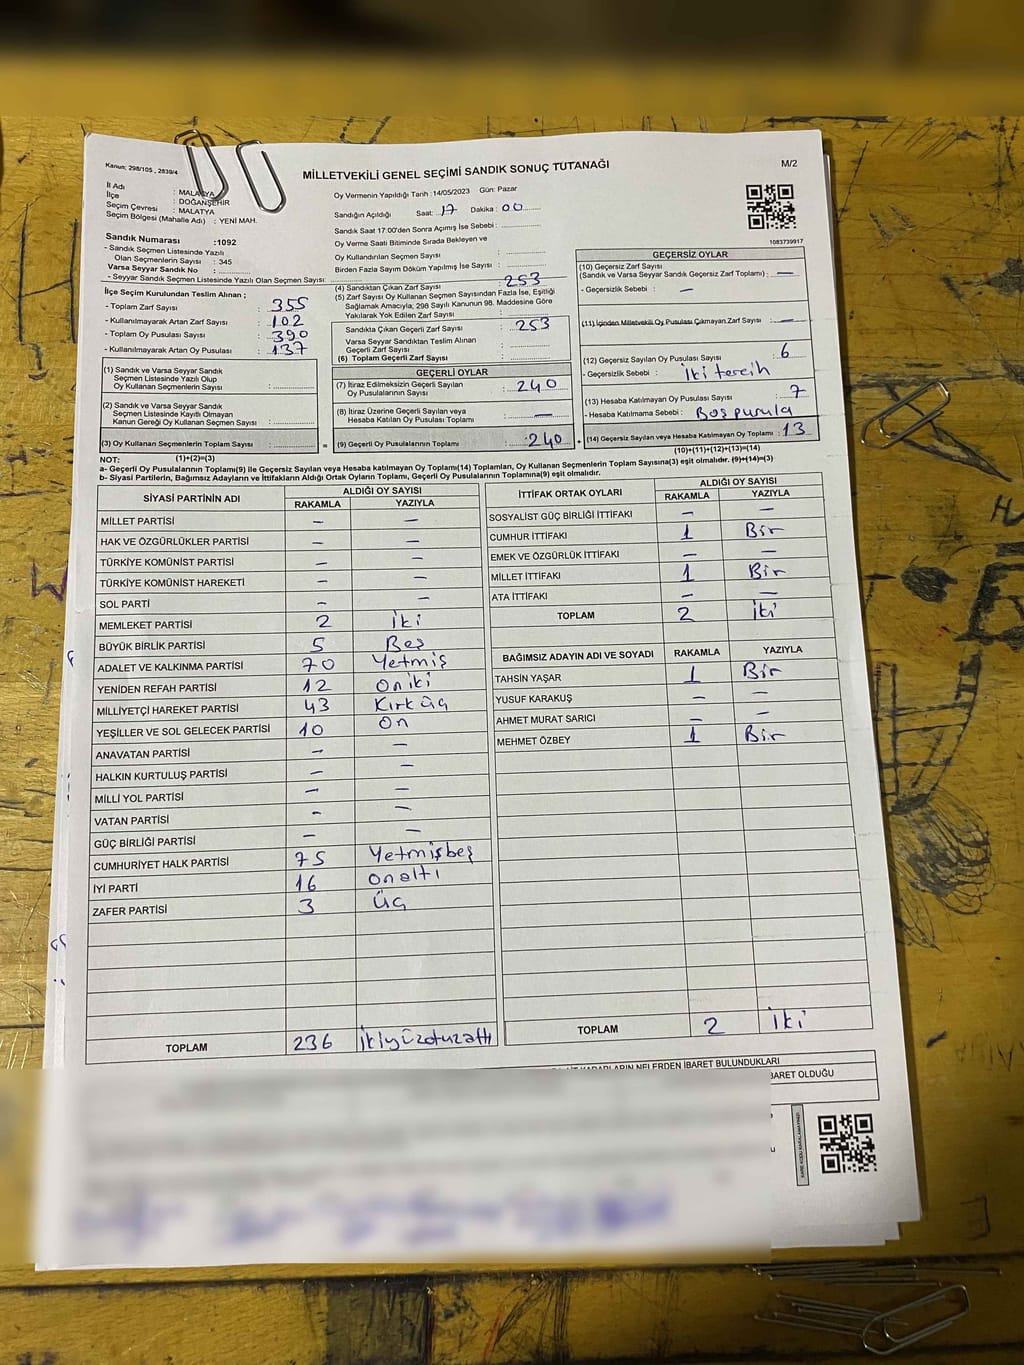 Kanun: 298/105 , 2839/4
MİLLETVEKİLİ GENEL SEÇİMİ SANDIK SONUÇ TUTANAĞI
M/2
İl Adı : MALATYA
İlçe : DOĞANŞEHİR
Seçim Çevresi : MALATYA
Seçim Bölgesi (Mahalle Adı) : YENİ MAH.
Sandık Numarası :1092
- Sandık Seçmen Listesinde Yazılı
Olan Seçmenlerin Sayısı : 345
Varsa Seyyar Sandık No :
- Seyyar Sandık Seçmen Listesinde Yazılı Olan Seçmen Sayısı:
Oy Vermenin Yapıldığı Tarih :14/05/2023 Gün: Pazar
Sandığın Açıldığı Saat: 17 Dakika: 00
Sandık Saat 17:00'den Sonra Açımış İse Sebebi :
Oy Verme Saati Bitiminde Sırada Bekleyen ve
Oy Kullandırılan Seçmen Sayısı :
Birden Fazla Sayım Döküm Yapılmış İse Sayısı :
1083739917
İlçe Seçim Kurulundan Teslim Alınan ;
- Toplam Zarf Sayısı : 355
- Kullanılmayarak Artan Zarf Sayısı : 102
- Toplam Oy Pusulası Sayısı : 390
- Kullanılmayarak Artan Oy Pusulası : 137
(1) Sandık ve Varsa Seyyar Sandık
Seçmen Listesinde Yazılı Olup
Oy Kullanan Seçmenlerin Sayısı :
(2) Sandık ve Varsa Seyyar Sandık
Seçmen Listesinde Kayıtlı Olmayan
Kanun Gereği Oy Kullanan Seçmen Sayısı :
(3) Oy Kullanan Seçmenlerin Toplam Sayısı :
(1)+(2)=(3)
(4) Sandıktan Çıkan Zarf Sayısı : 253
(5) Zarf Sayısı Oy Kullanan Seçmen Sayısından Fazla İse, Eşitliği
Sağlamak Amacıyla, 298 Sayılı Kanunun 98. Maddesine Göre
Yakılarak Yok Edilen Zarf Sayısı :
Sandıkta Çıkan Geçerli Zarf Sayısı : 253
Varsa Seyyar Sandıktan Teslim Alınan
Geçerli Zarf Sayısı :
(6) Toplam Geçerli Zarf Sayısı :
GEÇERLİ OYLAR
(7) İtiraz Edilmeksizin Geçerli Sayılan
Oy Pusulalarının Sayısı : 240
(8) İtiraz Üzerine Geçerli Sayılan veya
Hesaba Katılan Oy Pusulası Toplamı : —
= (9) Geçerli Oy Pusulalarının Toplamı : 240
GEÇERSİZ OYLAR
(10) Geçersiz Zarf Sayısı
(Sandık ve Varsa Seyyar Sandık Geçersiz Zarf Toplamı) : —
- Geçersizlik Sebebi : —
(11) İçinden Milletvekili Oy Pusulası Çıkmayan Zarf Sayısı : —
(12) Geçersiz Sayılan Oy Pusulası Sayısı : 6
- Geçersizlik Sebebi : İki tercih
(13) Hesaba Katılmayan Oy Pusulası Sayısı : 7
- Hesaba Katılmama Sebebi : Boş pusula
+ (14) Geçersiz Sayılan veya Hesaba Katılmayan Oy Toplamı : 13
(10)+(11)+(12)+(13)=(14)
NOT:
a- Geçerli Oy Pusulalarının Toplamı(9) ile Geçersiz Sayılan veya Hesaba katılmayan Oy Toplamı(14) Toplamları, Oy Kullanan Seçmenlerin Toplam Sayısına(3) eşit olmalıdır. (9)+(14)=(3)
b- Siyasi Partilerin, Bağımsız Adayların ve İttifakların Aldığı Ortak Oyların Toplamı, Geçerli Oy Pusulalarının Toplamına(9) eşit olmalıdır.
SİYASİ PARTİNİN ADI
ALDIĞI OY SAYISI
RAKAMLA YAZIYLA
MİLLET PARTİSİ — —
HAK VE ÖZGÜRLÜKLER PARTİSİ — —
TÜRKİYE KOMÜNİST PARTİSİ — —
TÜRKİYE KOMÜNİST HAREKETİ — —
SOL PARTİ — —
MEMLEKET PARTİSİ 2 İki
BÜYÜK BİRLİK PARTİSİ 5 Beş
ADALET VE KALKINMA PARTİSİ 70 Yetmiş
YENİDEN REFAH PARTİSİ 12 Oniki
MİLLİYETÇİ HAREKET PARTİSİ 43 Kırküç
YEŞİLLER VE SOL GELECEK PARTİSİ 10 On
ANAVATAN PARTİSİ — —
HALKIN KURTULUŞ PARTİSİ — —
MİLLİ YOL PARTİSİ — —
VATAN PARTİSİ — —
GÜÇ BİRLİĞİ PARTİSİ — —
CUMHURİYET HALK PARTİSİ 75 Yetmişbeş
İYİ PARTİ 16 Onaltı
ZAFER PARTİSİ 3 Üç
TOPLAM 236 İkiyüzotuzaltı
İTTİFAK ORTAK OYLARI
ALDIĞI OY SAYISI
RAKAMLA YAZIYLA
SOSYALİST GÜÇ BİRLİĞİ İTTİFAKI — —
CUMHUR İTTİFAKI 1 Bir
EMEK VE ÖZGÜRLÜK İTTİFAKI — —
MİLLET İTTİFAKI 1 Bir
ATA İTTİFAKI — —
TOPLAM 2 İki
BAĞIMSIZ ADAYIN ADI VE SOYADI RAKAMLA YAZIYLA
TAHSİN YAŞAR 1 Bir
YUSUF KARAKUŞ — —
AHMET MURAT SARICI — —
MEHMET ÖZBEY 1 Bir
TOPLAM 2 İki
KARARLARIN NELERDEN İBARET BULUNDUKLARI
BARET OLDUĞU